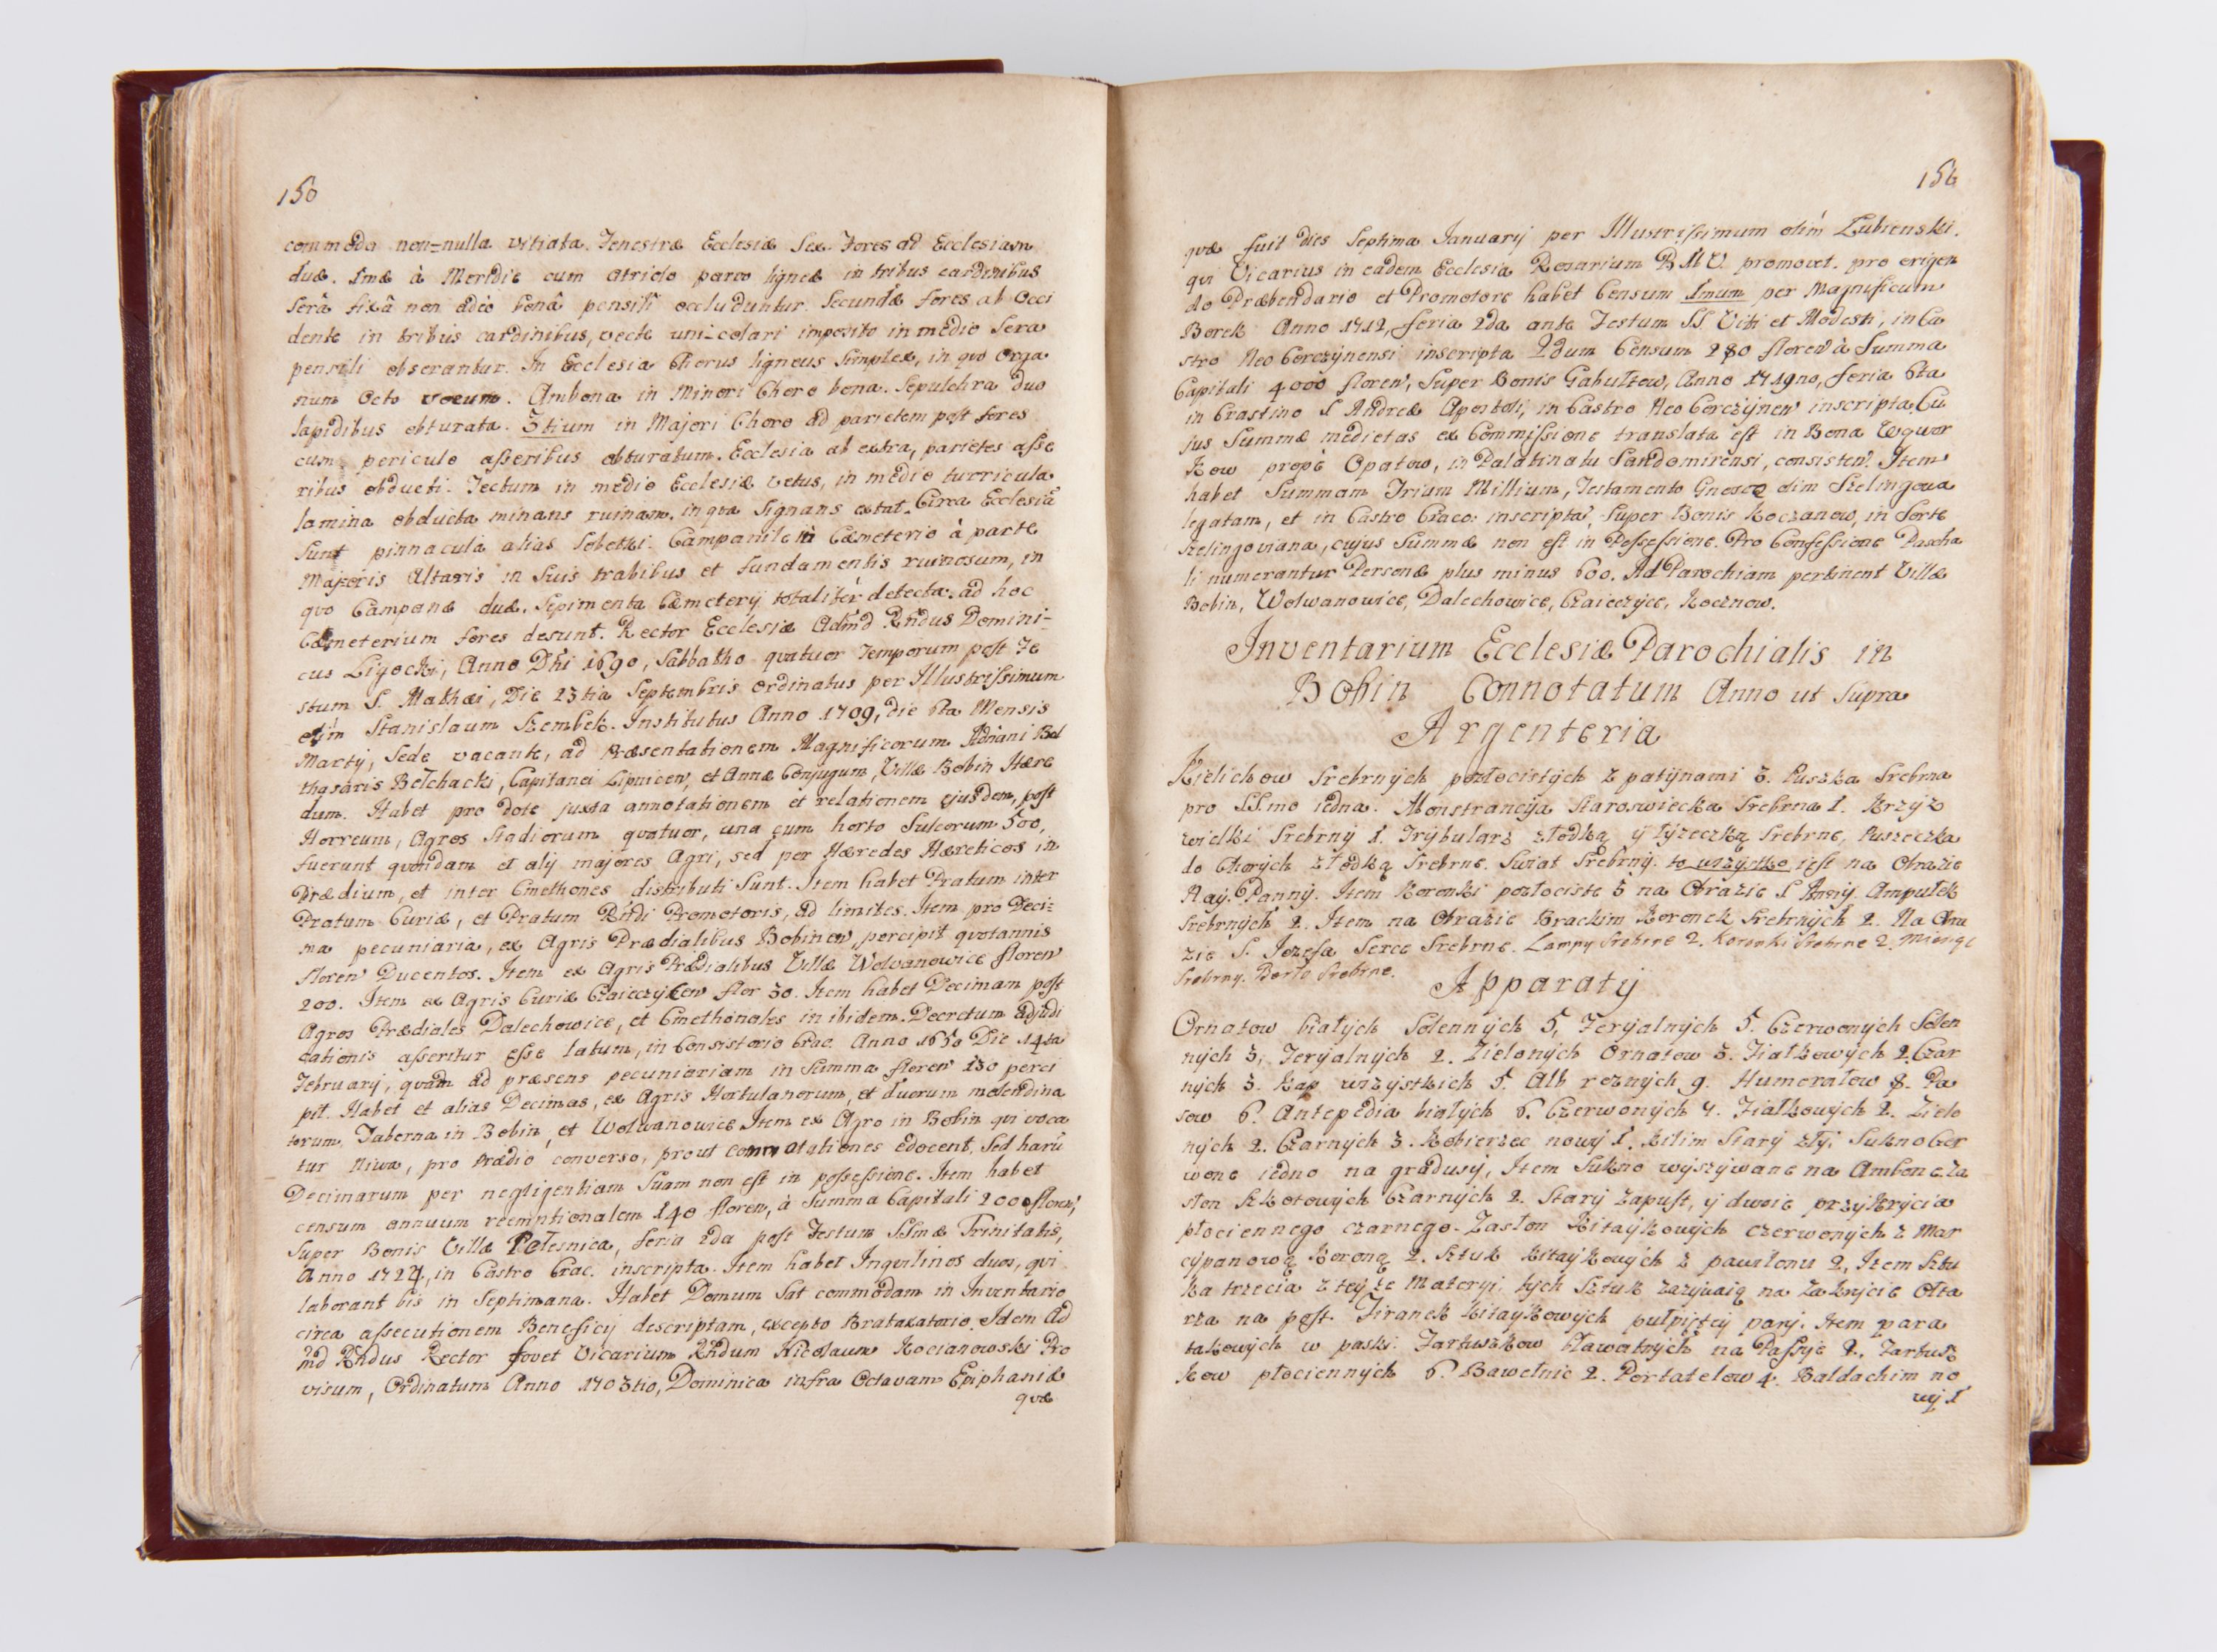 150
commoda non=nulla vitiata. Fenestræ Ecclesiæ Sex. Fores ad Ecclesiam
duæ. Imæ à Meridie cum atriolo parvo ligneæ in tribus cardinibus
serâ fixâ non adeò bonâ pensili occluduntur. Secundæ fores ab Occi
dente in tribus cardinibus, vecte uni-colari imposito in medio sera
pensili obserantur. In Ecclesia Chorus ligneus Simplex, in quo Orga
num Octo vocum. Ambona in Minori Choro bona. Sepulchra duo
lapidibus obturata. 3tium in Majori Choro ad parietem post fores
cum periculo asseribus obturatum. Ecclesia ab extra, parietes asse
ribus obducti. Tectum in medio Ecclesiæ vetus, in medio turricula
lamina obducta minans ruinam. in qua Signans extat. Circa Ecclesiã
Sunt pinnacula alias Sobotki. Campanile in Cæmeterio à parte
Majoris Altaris in Suis trabibus et fundamentis ruinosum, in
quo Campanæ duæ. Sepimenta Cæmeterij totalitèr detecta. ad hoc
Cæmeterium fores desunt. Rector Ecclesiæ Admd Rndus Domini-
cus Ligocki, Anno Dni 1690, Sabbatho quatuor Temporum post Fe
stum S. Mathæi, Die 23tia Septembris ordinatus per Illustrissimum
olim Stanislaum Szembek. Institutus Anno 1709, die 6ta Mensis
Martij, Sede vacante, ad Præsentationem Magnificorum Adriani Bal
thasaris Bełchacki, Capitanei Lipnicen, et Annæ Conjugum, Villæ Bobin Hære
dum. Habet pro dote juxta annotationem et relationem ejusdem, post
Horreum, Agros Stadiorum quatuor, una cum horto Sulcorum 500,
fuerunt quondam et alij majores Agri, sed per Hæredes Hæreticos in
Prædium, et inter Cmethones distributi Sunt. Item habet Pratum inter
Pratum Curiæ, et Pratum Rndi Promotoris, ad limites. Item pro Deci=
ma pecuniaria, ex Agris Prædialibus Bobinen percipit quotannis
floren Ducentos. Item ex Agris Prædialibus Villæ Wolvanowice floren
200. Item ex Agris Curiæ Czaieczycen flor 30. Item habet Decimam post
Agros Prædiales Dalechowice, et Cmethonales in ibidem. Decretum adjudi
cationis asseritur esse latum, in Consistorio Crac. Anno 1650 Die 14ta
Februarij, quam ad præsens pecuniariam in Summa floren 130 perci
pit. Habet et alias Decimas, ex Agris Hortulanorum, et duorum molendina
torum. Taberna in Bobin, et Wolwanowice Item ex Agro in Bobin qui voca
tur Niwa, pro Prædio converso, prout connotationes edocent. Sed harũ
Decimarum per negligentiam Suam non est in possessione. Item habet
censum annuum reemptionalem 140 floren, à Summa Capitali 2000 floren,
Super Bonis Villæ Polesnica, feria 2da post Festum SSmæ Trinitatis,
Anno 1724, in Castro Crac. inscripta. Item habet Inquilinos duos, qui
laborant bis in Septimana. Habet Domum Sat commodam in Inventario
circa assecutionem Beneficij descriptam, excepto Brataxatorio. Idem Ad
md Rndus Rector fovet Vicarium Rndum Nicolaum Kocianowski Pro
visum, Ordinatum Anno 1703tio, Dominica infra Octavam Epiphaniæ
quæ
156
quæ fuit dies Septima Januarij per Illustrissimum olim Łubienski,
qui Vicarius in eadem Ecclesia Rosarium B M V. promovet. pro erigen
do Præbendario et Promotore habet Censum 1mum per Magnificum
Borek Anno 1712, feria 2da ante Festum SS Viti et Modesti, in Ca
stro Neo Corczynensi inscripta 2dum Censum 280 floren à Summa
Capitali 4000 floren, Super Bonis Gabułtow, Anno 1719no, feria 6ta
in Crastino S Andreæ Apostoli, in Castro Neo Corczynen inscripta, Cu
jus Summæ medietas ex Commissione translata est in Bona Wgwor
kow propè Opatow, in Palatinatu Sandomirensi, consisten. Item
habet Summam Trium Millium, Testamento Gnoso olim Szelingowa
legatam, et in Castro Craco: inscripta, Super Bonis Koczanow, in Sorte
Szelingoviana, cujus Summæ non est in Possessione. Pro Confessione Pascha
li numerantur Personæ plus minus 600. Ad Parochiam pertinent Villæ
Bobin, Wolwanowice, Dalechowice, Czaieczyce, Kocznow.
Inventarium Ecclesiæ Parochialis in
Bobin Connotatum Anno ut Supra
Argenteria
Kielichow Srebrnych pozłocistych z patynami 3. Puszka Srebrna
pro SS.mo iedna. Monstrancyja Staroswiecka Srebrna 1. Krzyż
wielki Srebrny 1. Trybularz z łodką y łyżeczką Srebrne, Puszeczka
do Chorych z łodką Srebrne. Swiat Srebrny. to wszystko iest na Obrazie
Nay. Panny. Item Koronki pozłociste 3 na Obrazie S Anny. Ampułek
Srebrnych 2. Item na Obrazie Brackim Koronek Srebrnych 2. Na Obra
zie S. Jozefa Serce Srebrne. Lampy Srebrne 2. Koronki Srebrne 2. Miesiąc
Srebrny. Berło Srebrne.
Apparaty
Ornatow białych Solennych 5, Feryalnych 5. Czerwonych Solen
nych 3, Feryalnych 2. Zielonych Ornatow 3. Fiałkowych 2. Czar
nych 3. Kap wszystkich 5. Alb roznych 9. Humerałow 8. Pa
sow 6. Antepedia białych 6. Czerwonych 4. Fiałkowych 2. Zielo
nych 2. Czarnych 3. Kobierzec nowy 1. Kilim Stary zły. Sukno Czer
wone iedno na gradusy, Item Sukno wyszywane na Ambonę. Za
słon Szkotowych Czarnych 2. Stary zapust, y dwoie przykrycia
płociennego czarnego. Zasłon Kitaykowych czerwonych z Mar
cypanową Koroną 2. Sztuk kitaykowych z pawilonu 2, Item Sztu
ka trzecia z teyże Materyi, tych Sztuk zażywaią na zakrycie Ołta
rza na post. Firanek kitaykowych pulpistey pary. Item para
takowych w paski. Fartuszkow bławatnych na Passyie 2. Fartusz
kow płociennych 6. Bawełnic 2. Portatelow 4. Baldachim no
wy 1